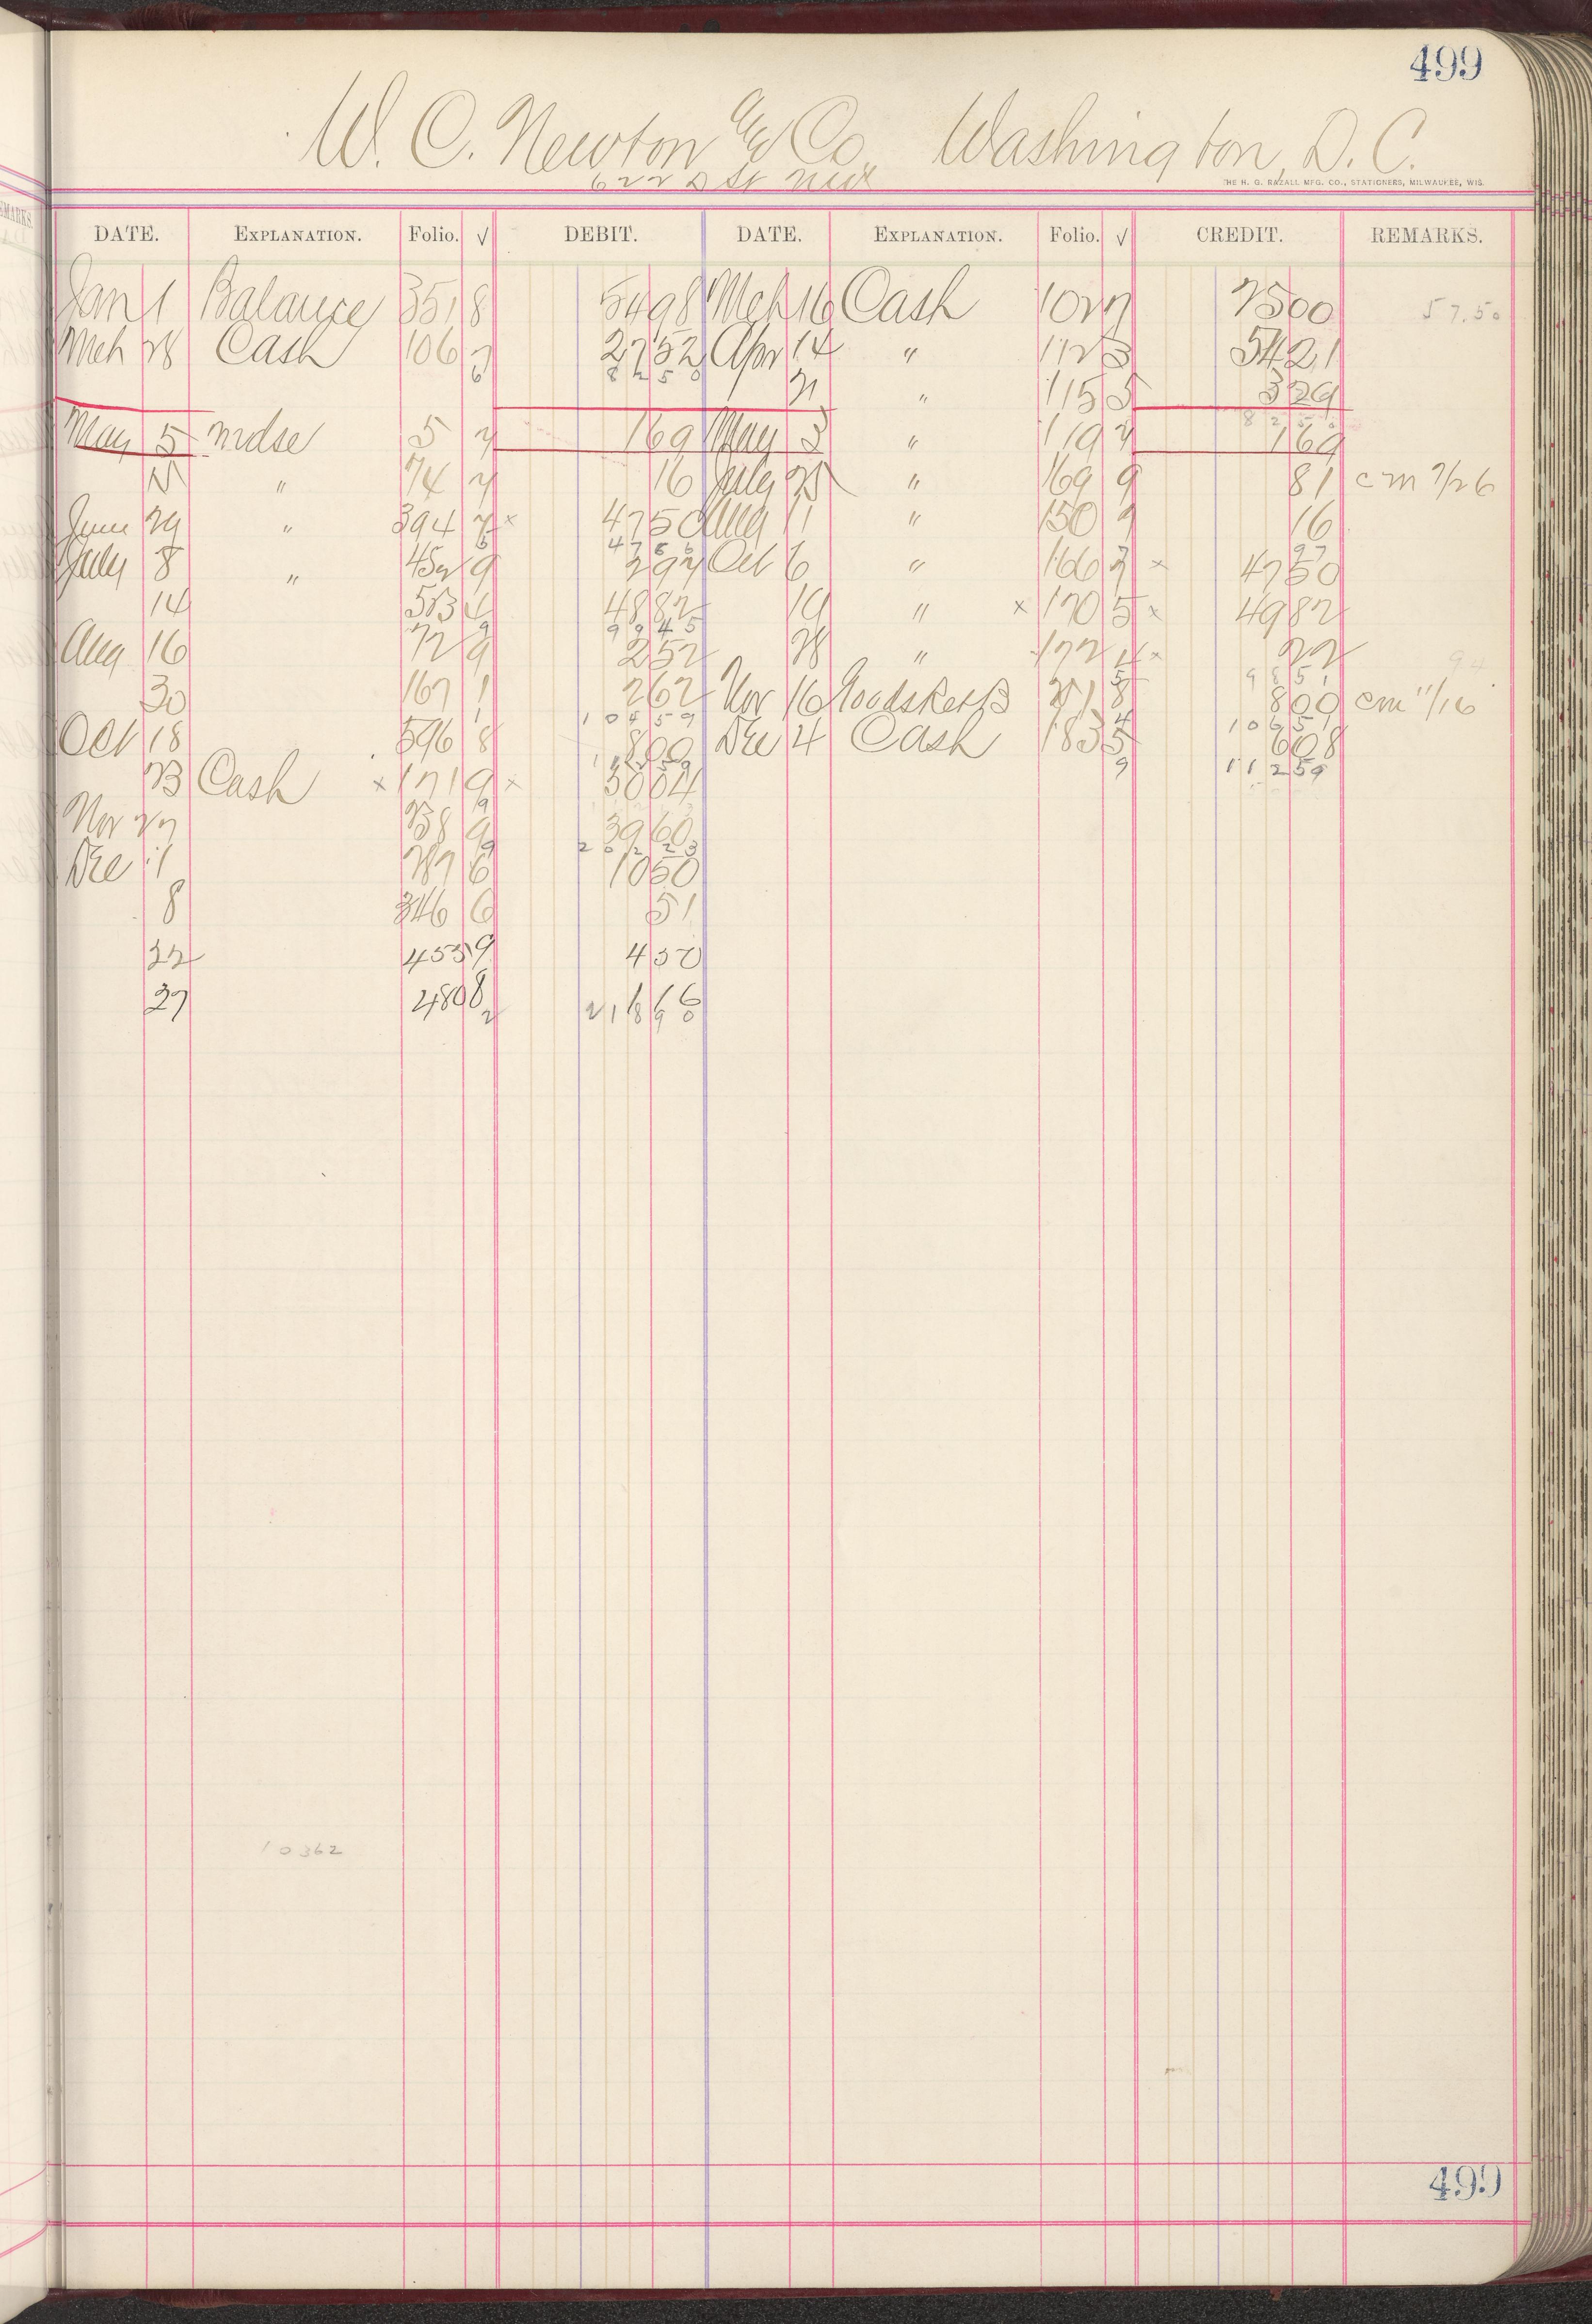 499
W. C. Newton & Co Washington, D. C.
622 D St NW
THE H. G. RAZALL MFG. CO., STATIONERS, MILWAUKEE, WIS.
DATE. EXPLANATION. Folio. √ DEBIT. DATE. EXPLANATION. Folio. √ CREDIT. REMARKS.
Jan 1 Balance 351 8 5498 Mch 16 Cash 102 7 2500 57.50
Mch 28 Cash 106 7 2752 Apr 14 " 112 3 5421
6 8250 21 " 115 5 329
8250
May 5 mdse 5 7 169 May 3 " 119 7 169
21 " 74 7 16 July 25 " 169 9 81 cm 7/26
June 29 " 394 7 × 4750 Aug 11 " 150 9 16
6 4766 97
July 8 " 452 9 297 Oct 6 " 166 3 × 4750
14 513 4 4882 19 " × 170 5 × 4982
9 9945
Aug 16 72 9 252 28 " 172 4 × 22 94
5 9851
30 167 1 262 Nov 16 Goods Retd 271 8 800 cm 11/16
1 10459 4 10651
Oct 18 596 8 800 Dec 4 Cash 183 5 608
11259 9 11259
23 Cash × 171 9 × 5004
Nov 27 238 9 3960
9 20223
Dec 1 287 6 1050
8 346 6 51
22 453 9 450
27 480 8 166
2 21890
10362
499